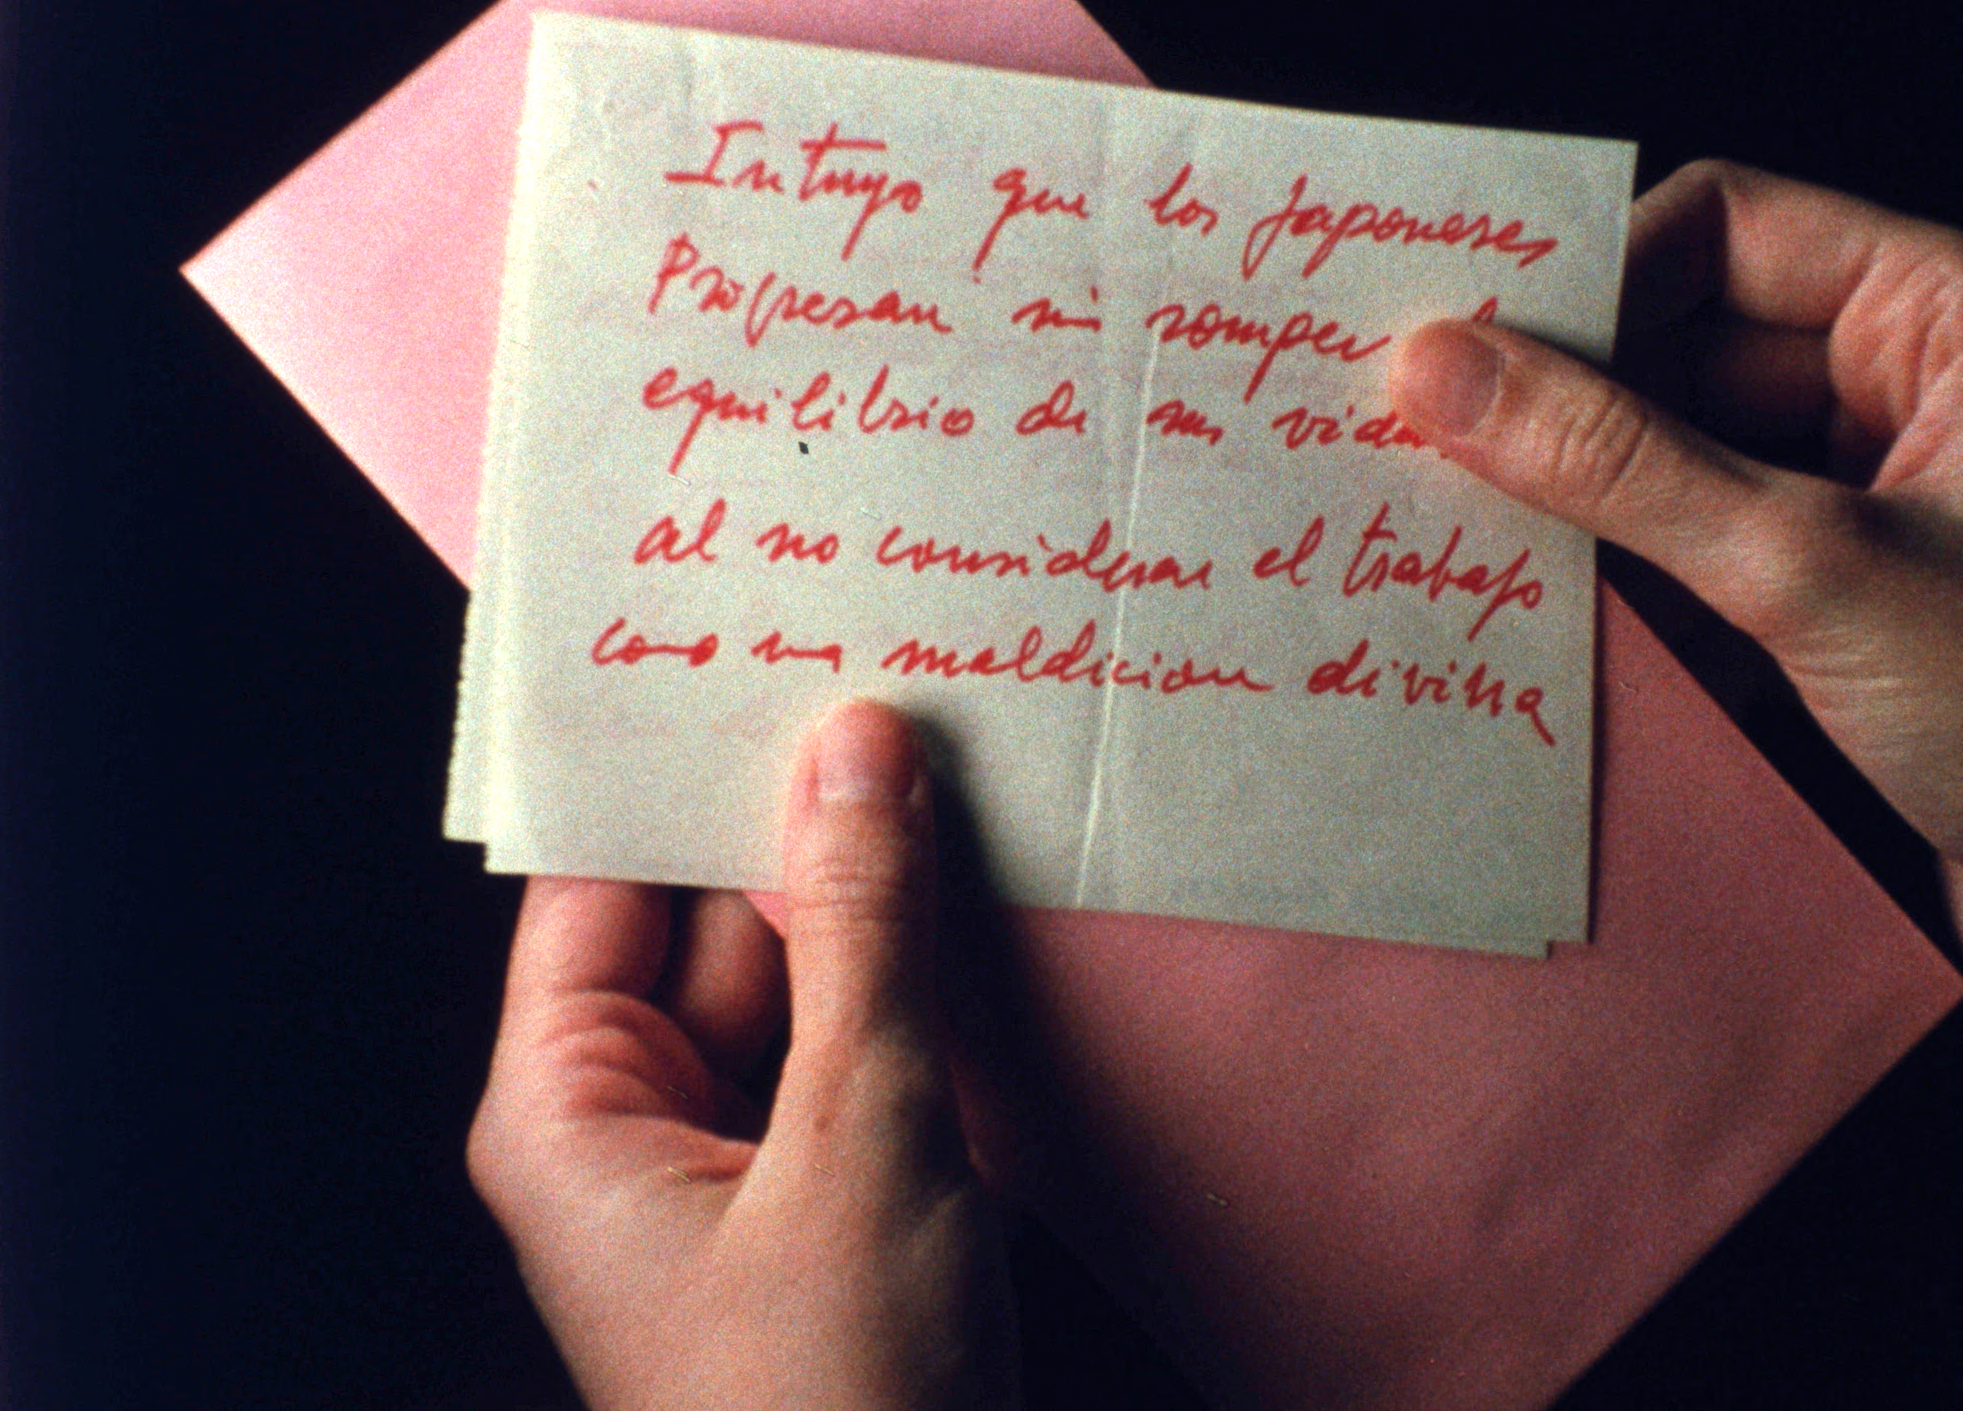 Intuyo que los Japoneses
Progresan sin romper
equilibrio de sus vidas
al no considerar el trabajo
como una maldicion divina